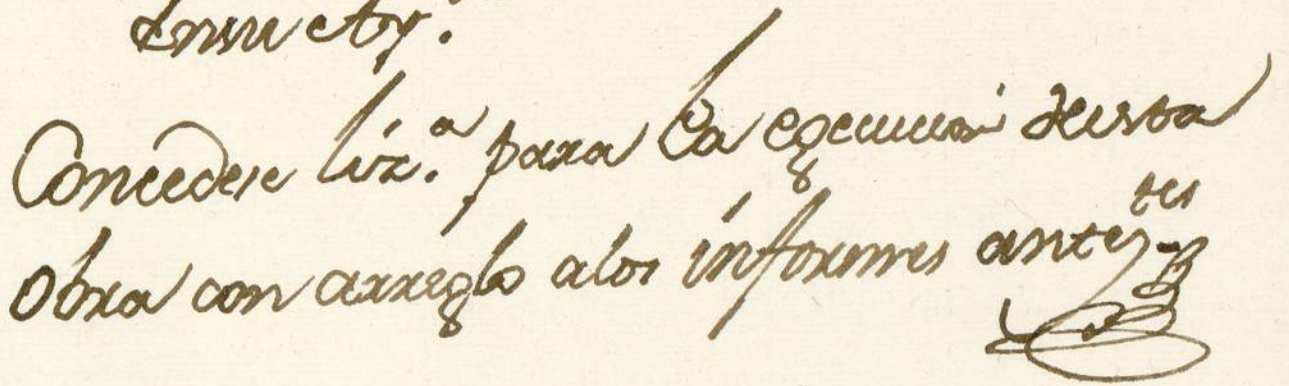 En su Ay.
Concedese liz.ª para la egecucion de esta
Obra con arreglo a los informes anteᵗᵉˢ